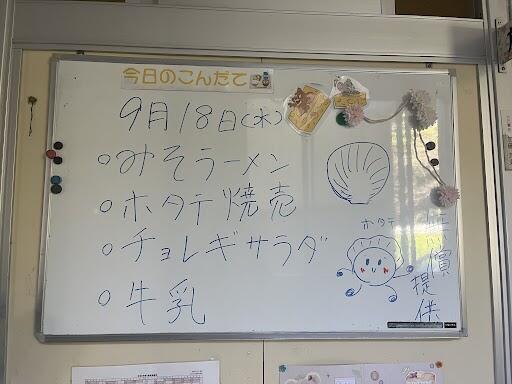 今日のこんだて
9月18日(水)
○みそラーメン
○ホタテ焼売
○チョレギサラダ
○牛乳
ホタテ
無償提供